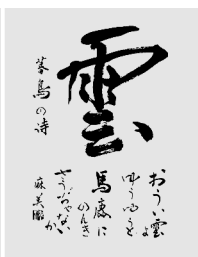 雲
おうい雲よ
ゆうゆうと
馬鹿に
のんき
さうぢやないか